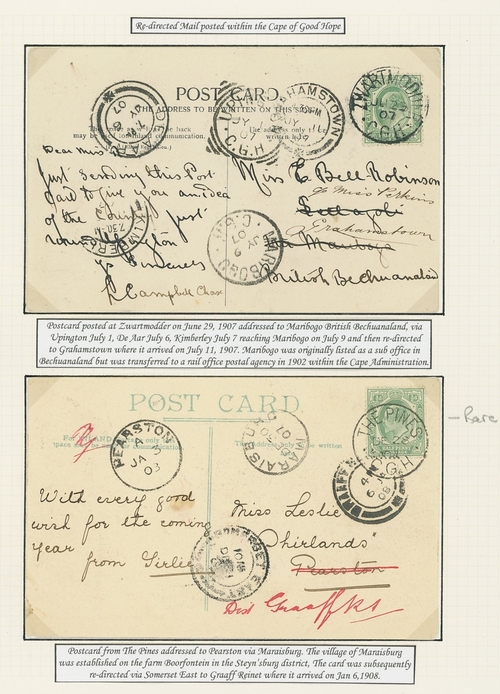 Re-directed Mail posted within the Cape of Good Hope
POST CARD.
THE ADDRESS TO BE WRITTEN ON THIS SIDE
Dear Miss
Just sending this Post
Card to give you an idea
of the County just
round Upington
Campbell Chase
Miss E Bell-Robinson
c/o Miss Perkins
Grahamstown
via Maribogo
British Bechuanaland
ZWARTMODDER
07
C.G.H
GRAHAMSTOWN
C.G.H
DE AAR
07
KIMBERLEY
7.30
MARIBOGO
JY 9
07
Postcard posted at Zwartmodder on June 29, 1907 addressed to Maribogo British Bechuanaland, via
Upington July 1, De Aar July 6, Kimberley July 7 reaching Maribogo on July 9 and then re-directed
to Grahamstown where it arrived on July 11, 1907. Maribogo was originally listed as a sub office in
Bechuanaland but was transferred to a rail office postal agency in 1902 within the Cape Administration.
POST CARD.
THE PINES
C.G.H
PEARSTON
JA
03
MARAISBURG
GRAAFF
08
SOMERSET EAST
With every good
wish for the coming
year
from Girlie
Miss Leslie
"Thirlands"
Pearston
Graaff Rt
Rare
Postcard from The Pines addressed to Pearston via Maraisburg. The village of Maraisburg
was established on the farm Boorfontein in the Steyn'sburg district, The card was subsequently
re-directed via Somerset East to Graaff Reinet where it arrived on Jan 6,1908.